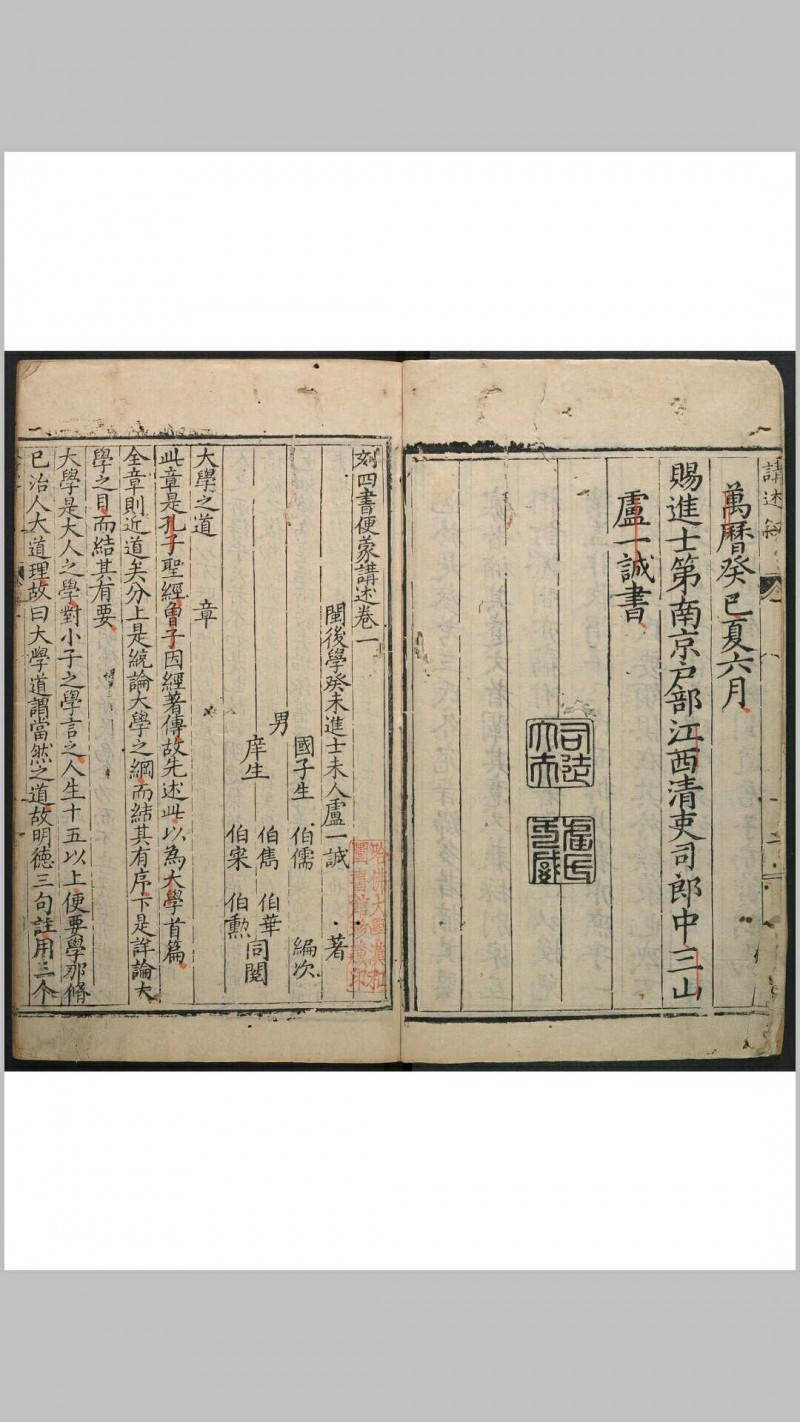 講述
萬曆癸巳夏六月
賜進士第南京戶部江西清吏司郎中三山
盧一誠書
刻四書便蒙講述卷一
閩後學癸未進士未人盧一誠 著
男
國子生 伯儒 編次
庠生
伯雋 伯華
伯寀 伯勲
同閱
大學之道 章
此章是孔子聖經曾子因經著傳故先述此以為大學首篇
全章則近道矣分上是統論大學之綱而結其有序下是詳論大
學之目而結其有要
大學是大人之學對小子之學言之人生十五以上便要學那脩
己治人大道理故曰大學道謂當然之道故明德三句註用三个
哈佛大學漢和
圖書館珍藏印